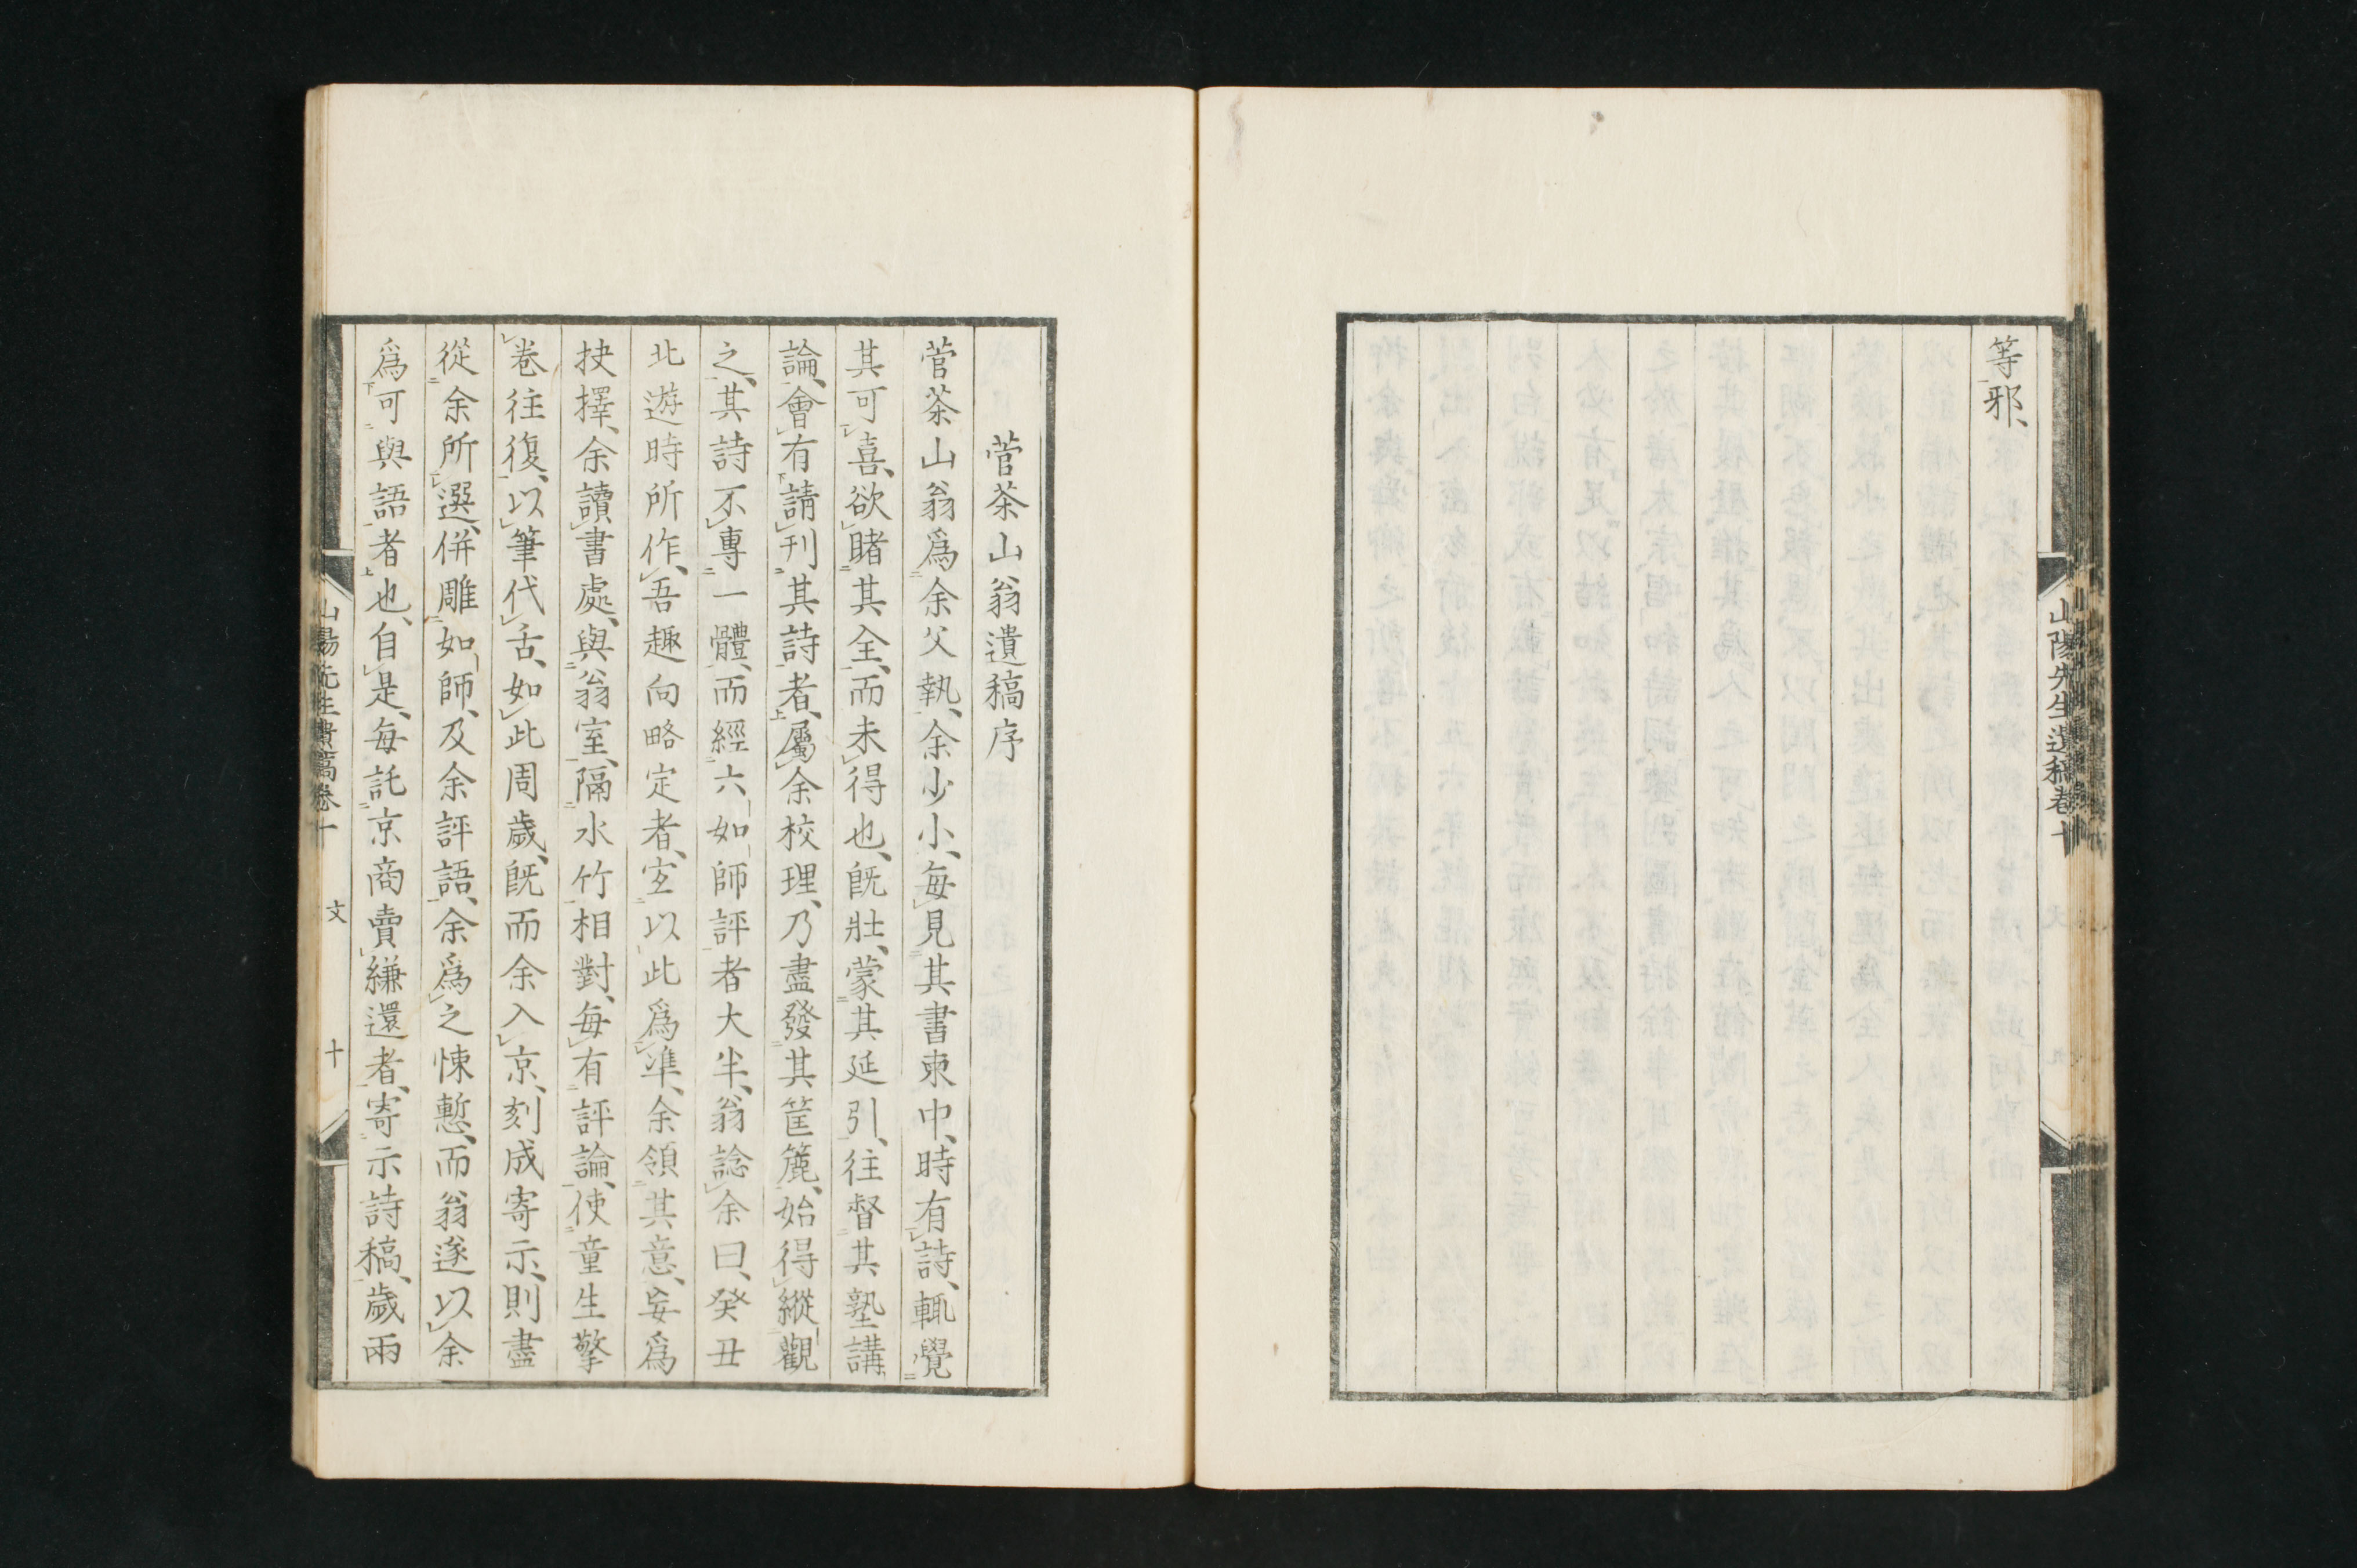 等邪、
山陽先生遺稿卷十
菅茶山翁遺稿序
菅茶山翁爲余父執、余少小、毎見其書柬中、時有詩、輒覺
其可喜、欲睹其全、而未得也、既壯、蒙其延引、往督其塾講
論、會有請刊其詩者、屬余校理、乃盡發其筐簏、始得縱觀
之、其詩不專一體、而經六如師評者大半、翁諗余曰、癸丑
北遊時所作、吾趣向略定者、宜以此爲準、余領其意、妄爲
抉擇、余讀書處、與翁室、隔水竹相對、毎有評論、使童生擎
卷往復、以筆代舌、如此周歲、既而余入京、刻成寄示、則盡
從余所選、併雕如師、及余評語、余爲之悚慙、而翁遂以余
爲可與語者也、自是、毎託京商賣縑還者、寄示詩稿、歲兩
山陽先生遺稿卷十
文
十